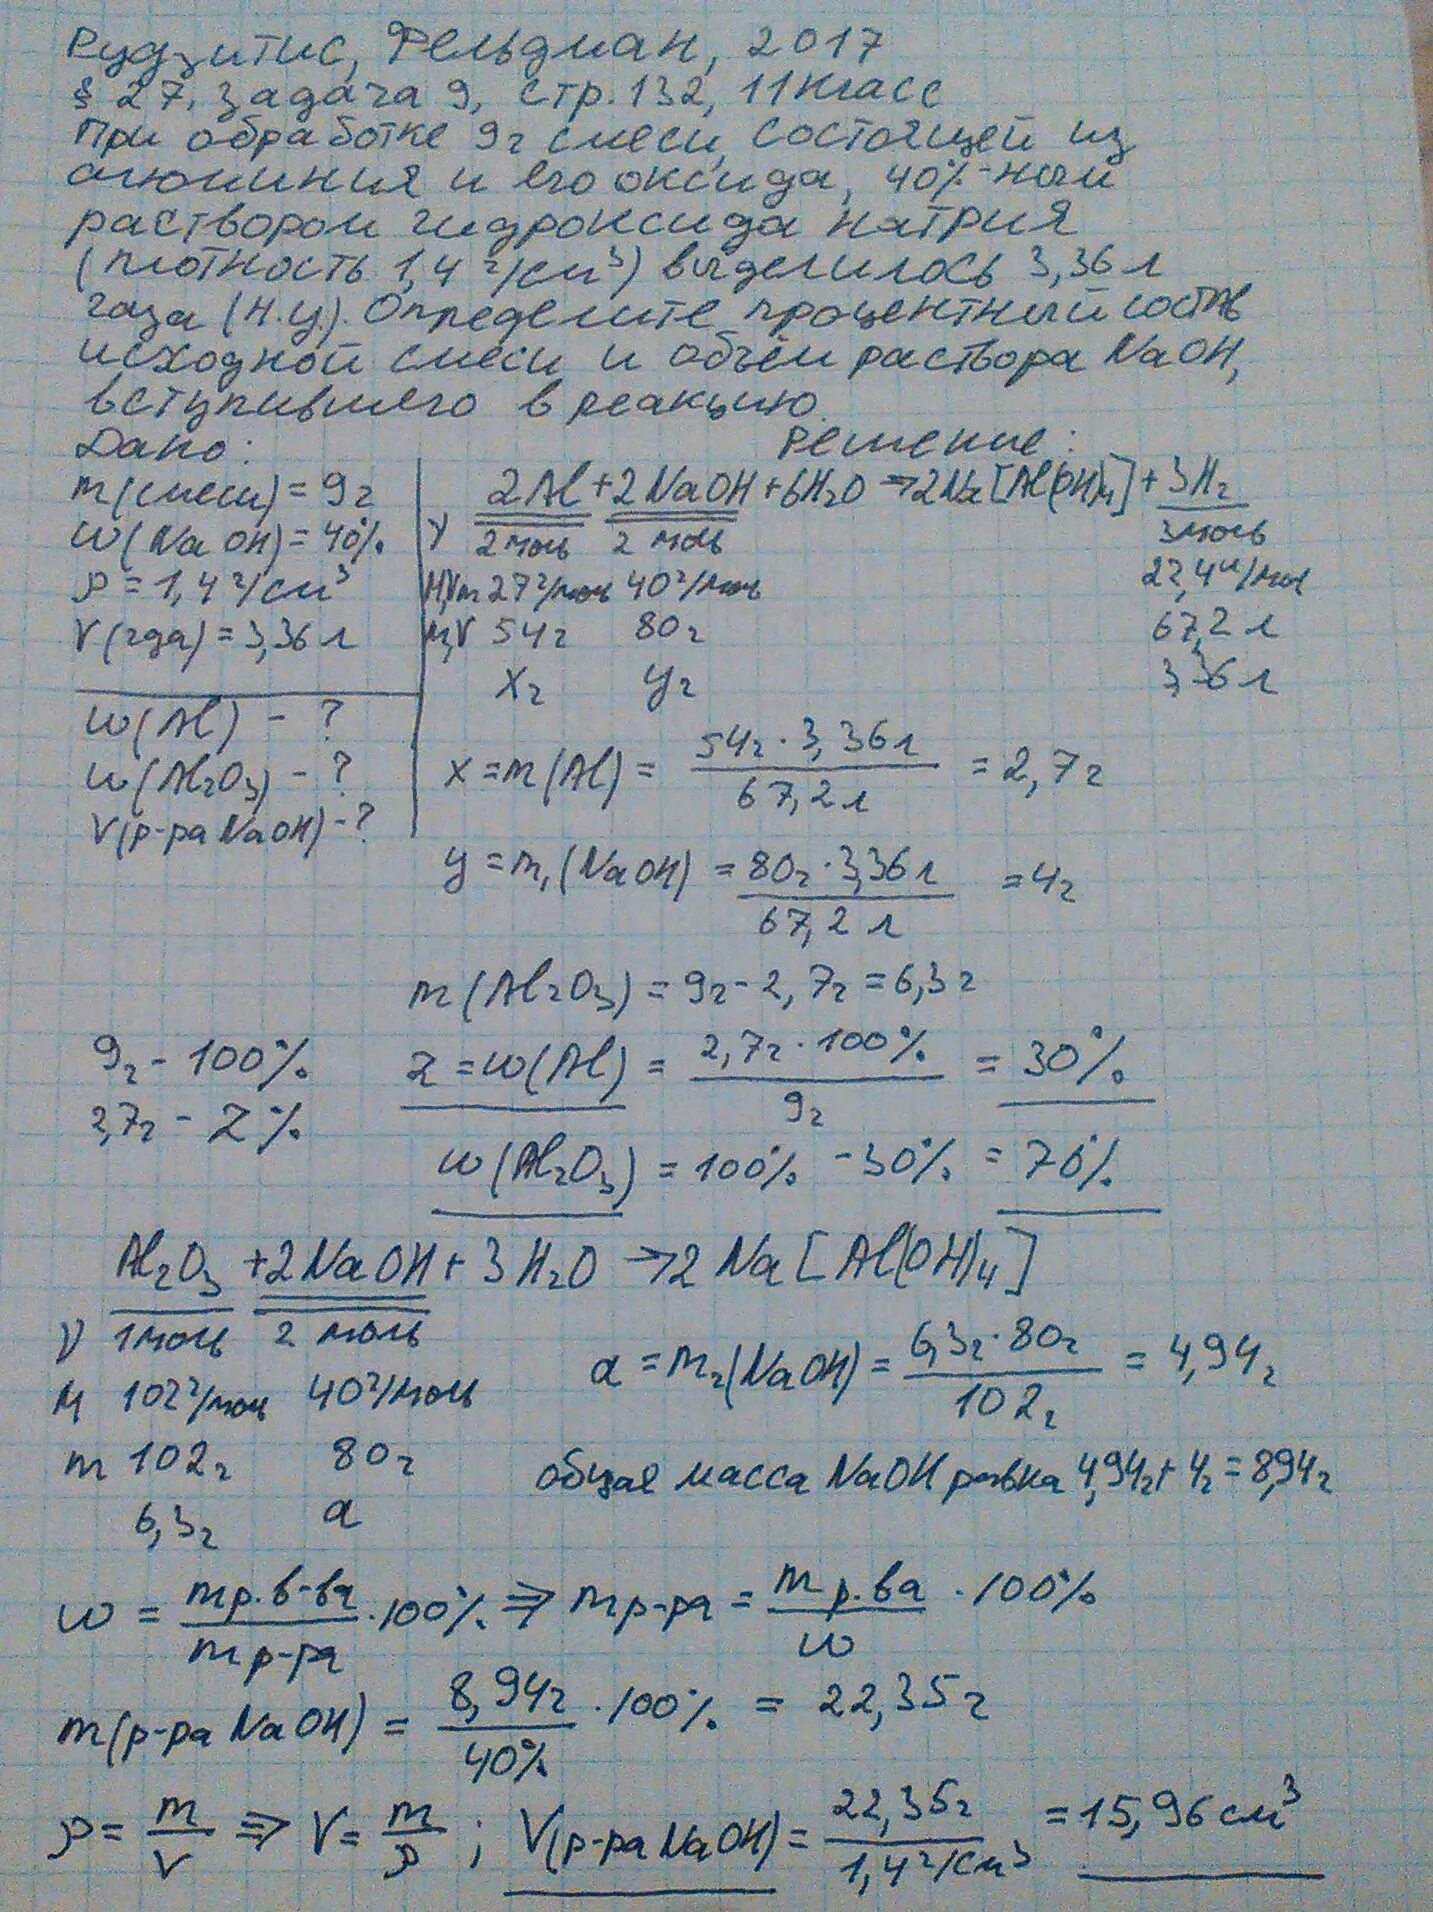 Рудзитис, Фельдман, 2017
§ 27, задача 9, стр. 132, 11 класс
При обработке 9г смеси, состоящей из
алюминия и его оксида, 40%-ным
раствором гидроксида натрия
(плотность 1,4 г/см³) выделилось 3,36 л
газа (н.у.). Определите процентный состав
исходной смеси и объём раствора NaOH,
вступившего в реакцию.
Дано:
m(смеси) = 9г
w(NaOH) = 40%
ρ = 1,4 г/см³
V(газа) = 3,36 л
w(Al) - ?
w(Al₂O₃) - ?
V(р-ра NaOH) - ?
Решение:
2Al + 2NaOH + 6H₂O → 2Na[Al(OH)₄] + 3H₂
ν 2 моль 2 моль 3 моль
M,Vm 27 г/моль 40 г/моль 22,4 л/моль
m,V 54г 80г 67,2 л
xг yг 3,36 л
x = m(Al) = 54г · 3,36 л / 67,2 л = 2,7г
y = m₁(NaOH) = 80г · 3,36 л / 67,2 л = 4г
m(Al₂O₃) = 9г - 2,7г = 6,3г
9г - 100%
2,7г - z%
z = w(Al) = 2,7г · 100% / 9г = 30%
w(Al₂O₃) = 100% - 30% = 70%
Al₂O₃ + 2NaOH + 3H₂O → 2Na[Al(OH)₄]
ν 1 моль 2 моль
M 102 г/моль 40 г/моль
m 102г 80г
6,3г a
a = m₂(NaOH) = 6,3г · 80г / 102г = 4,94г
общая масса NaOH равна 4,94г + 4г = 8,94г
w = mр.в-ва / mр-ра · 100% ⇒ mр-ра = mр.ва / w · 100%
m(р-ра NaOH) = 8,94г / 40% · 100% = 22,35г
ρ = m / V ⇒ V = m / ρ ; V(р-ра NaOH) = 22,35г / 1,4 г/см³ = 15,96 см³